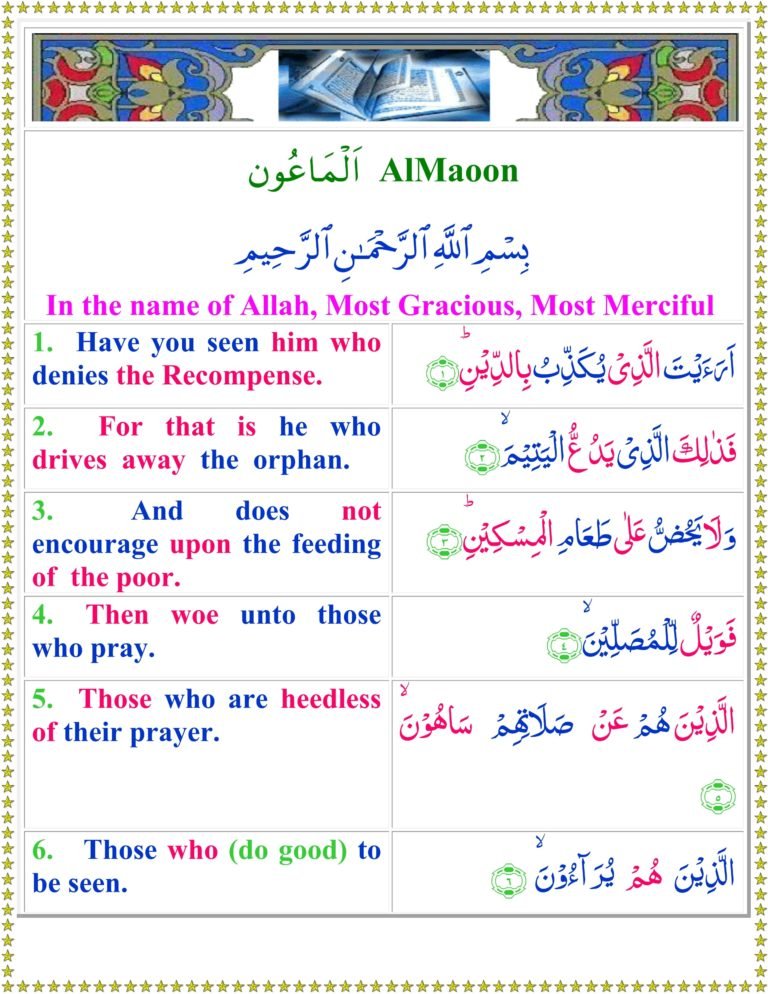 اَلْمَاعُون AlMaoon
بِسْمِ ٱللَّهِ ٱلرَّحْمَـٰنِ ٱلرَّحِيمِ
In the name of Allah, Most Gracious, Most Merciful
1. Have you seen him who
denies the Recompense.
اَرَءَيْتَ الَّذِىْ يُكَذِّبُ بِالدِّيْنِؕ ﴿١﴾
2. For that is he who
drives away the orphan.
فَذٰلِكَ الَّذِىْ يَدُعُّ الْيَتِيْمَۙ ﴿٢﴾
3. And does not
encourage upon the feeding
of the poor.
وَلَا يَحُضُّ عَلٰى طَعَامِ الْمِسْكِيْنِؕ ﴿٣﴾
4. Then woe unto those
who pray.
فَوَيْلٌ لِّلْمُصَلِّيْنَۙ ﴿٤﴾
5. Those who are heedless
of their prayer.
الَّذِيْنَ هُمْ عَنْ صَلَاتِهِمْ سَاهُوْنَۙ
﴿٥﴾
6. Those who (do good) to
be seen.
الَّذِيْنَ هُمْ يُرَآءُوْنَۙ ﴿٦﴾